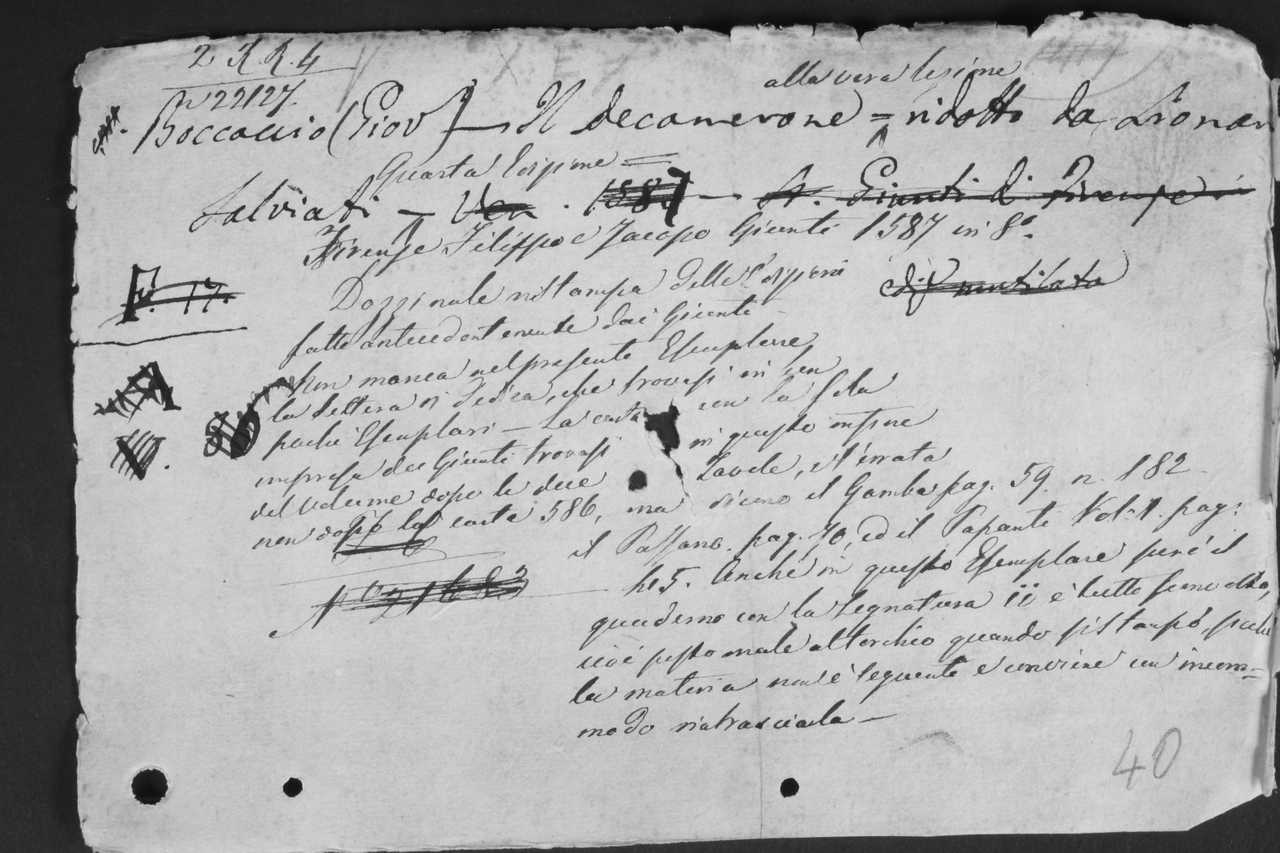 2. R. R. 4
n° 22127.
alla vera lezione
Boccaccio (Giov) — Il decamerone = ridotto da Lionar
Quarta edizione =
Salviati — Ven. 1587 — St. Giunti di Firenze
Firenze Filippo e Jacopo Giunti 1587 in 8°.
F. 17.
Dozzinale ristampa delle edizioni
dif mutilata
fatte antecedentemente dai Giunti
Non manca nel presente Esemplare
la lettera di Dedica, che trovasi in ben
pochi Esemplari — La carta con la sola
impresa dei Giunti trovasi in questo infine
del volume dopo le dece Tavole, e l'errata
non dopo la carta 586, ma dicono il Gamba pag. 59. n. 182
il Passano. pag. 70, ed il Papanti Vol. 1. pag.
N° 21683
Anche in questo Esemplare però il
quaderno con la segnatura ii è tutto
cioè posto male al torchio quando si stampò, perché
la materia non è seguente e conviene con incom=
modo rintracciarla —
40